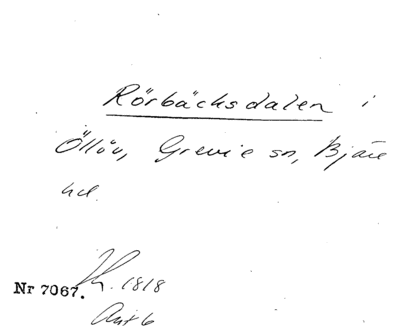 Rörbäcksdalen i
Öllöv, Grevie sn, Bjäre
hd.
1818
Nr 7067.